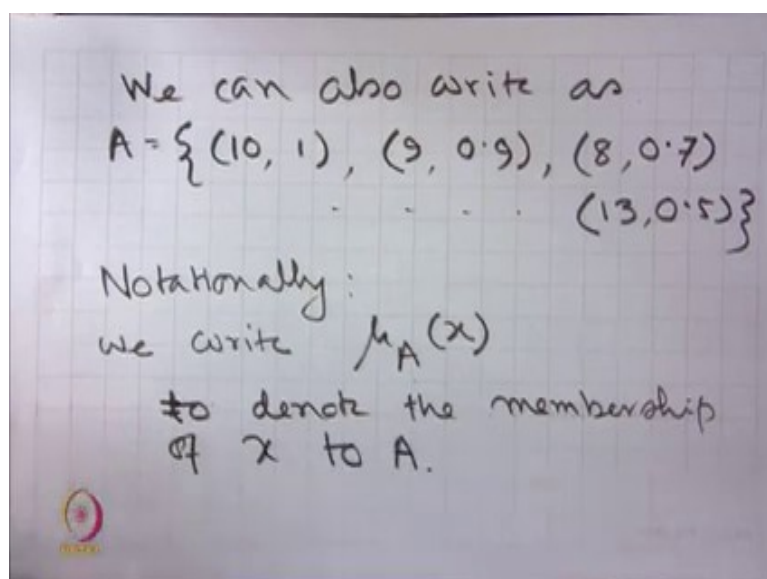 We can also write as
A = {(10, 1), (9, 0.9), (8, 0.7)
. . . . (13, 0.5)}
Notationally:
we write μ_A(x)
to denote the membership
of x to A.